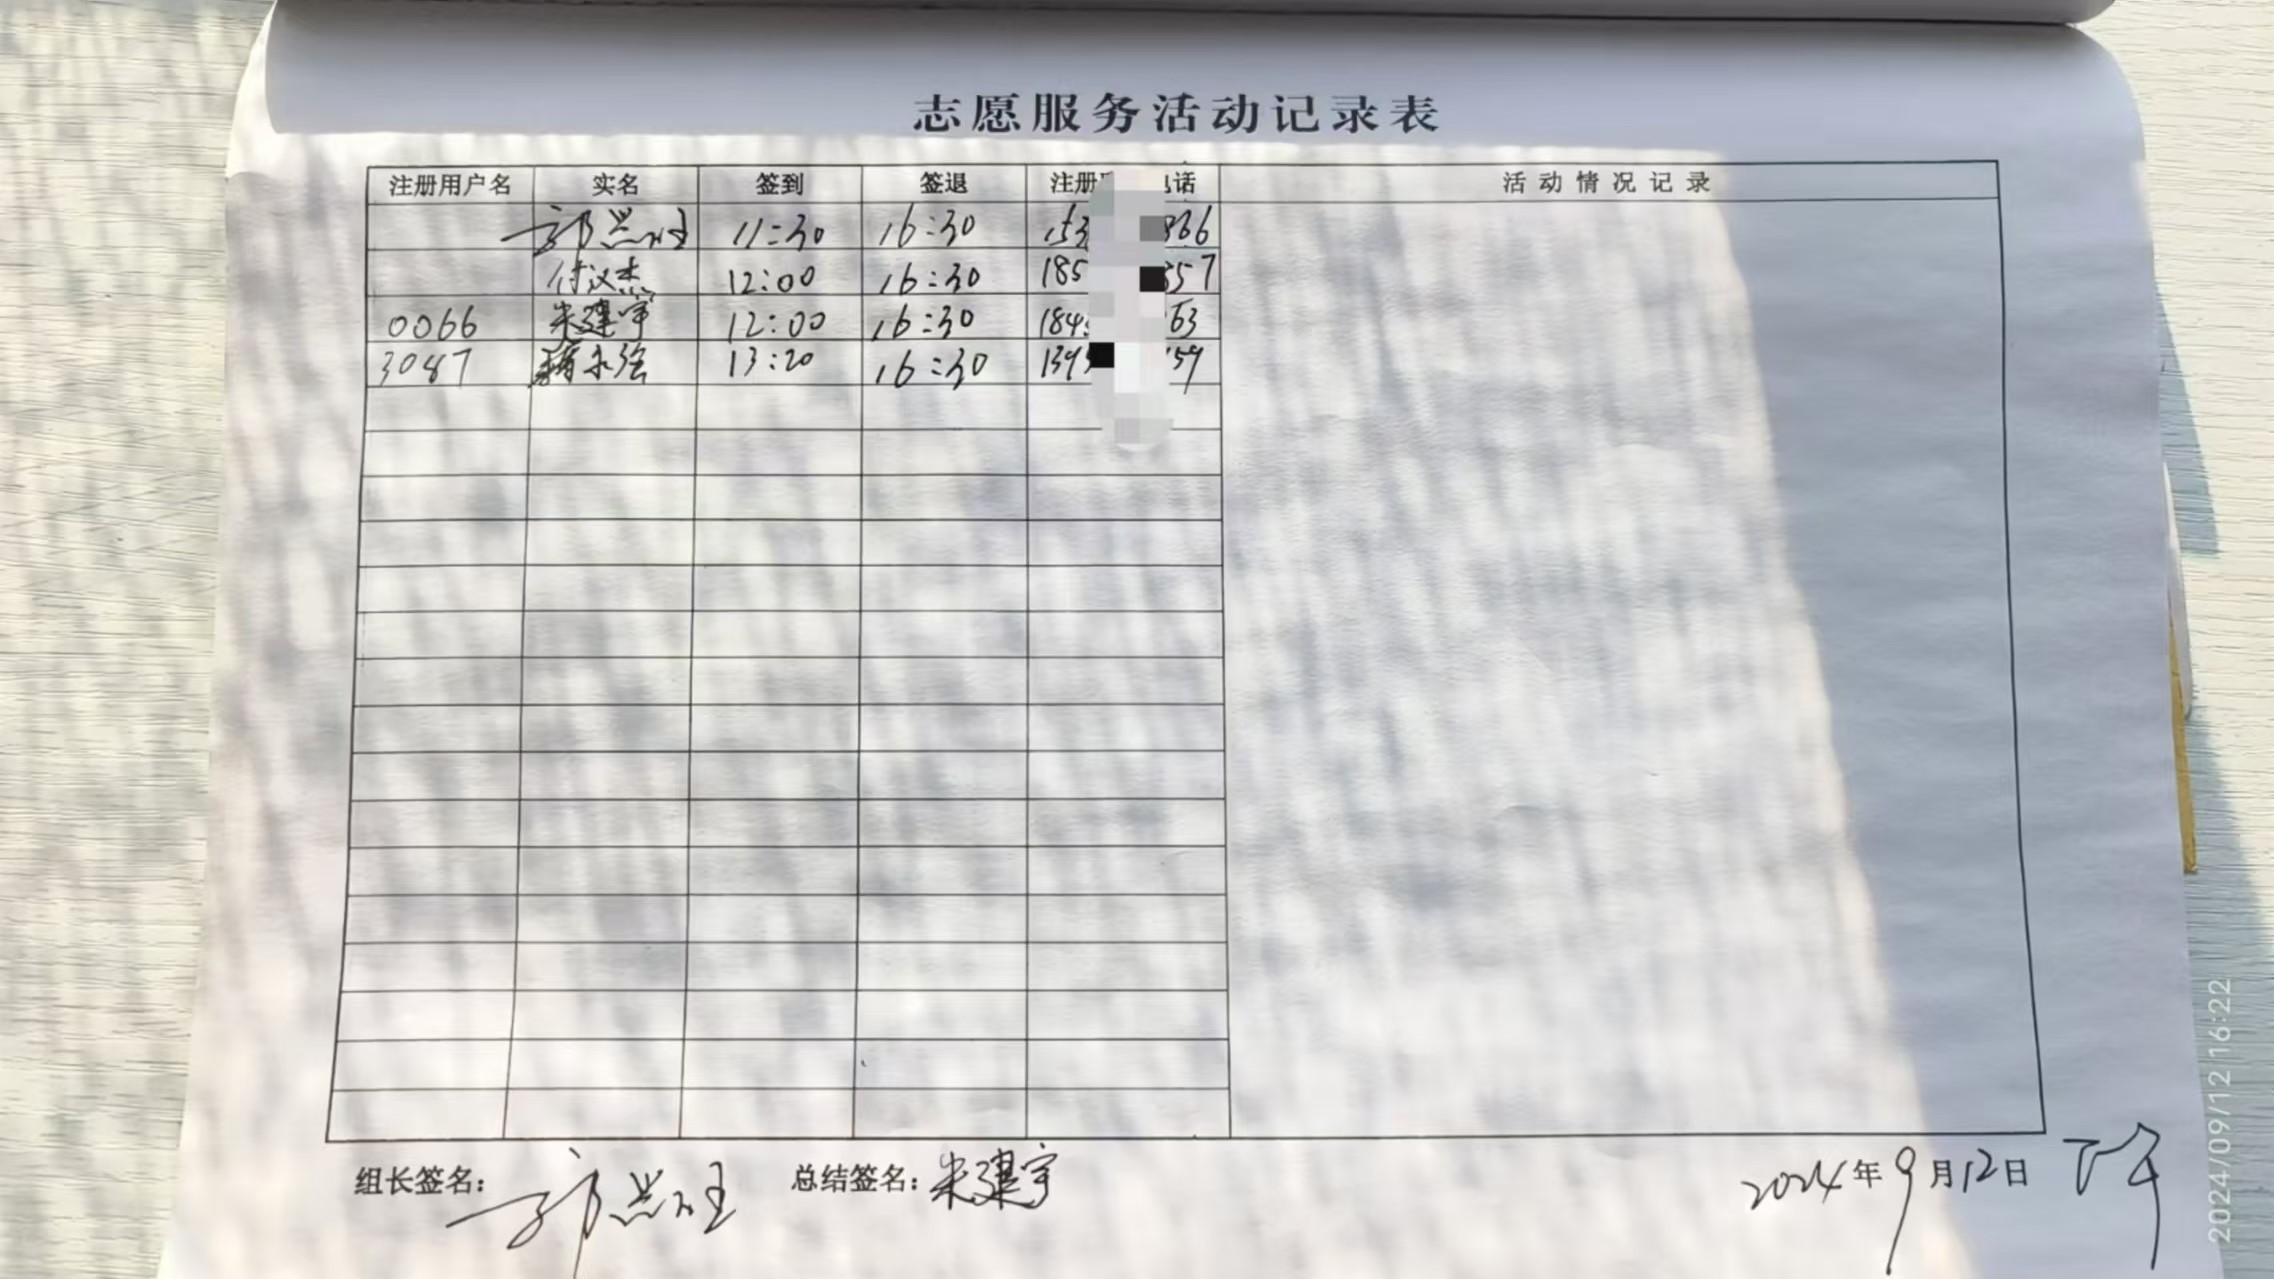 志愿服务活动记录表
注册用户名 实名 签到 签退 注册 电话 活动情况记录
11:30 16:30 153 866
付汉杰 12:00 16:30 185 357
0066 朱建宇 12:00 16:30 184 63
3087 永强 13:20 16:30 139 59
组长签名: 总结签名: 朱建宇 2024年9月12日 下午
2024/09/12 16:22